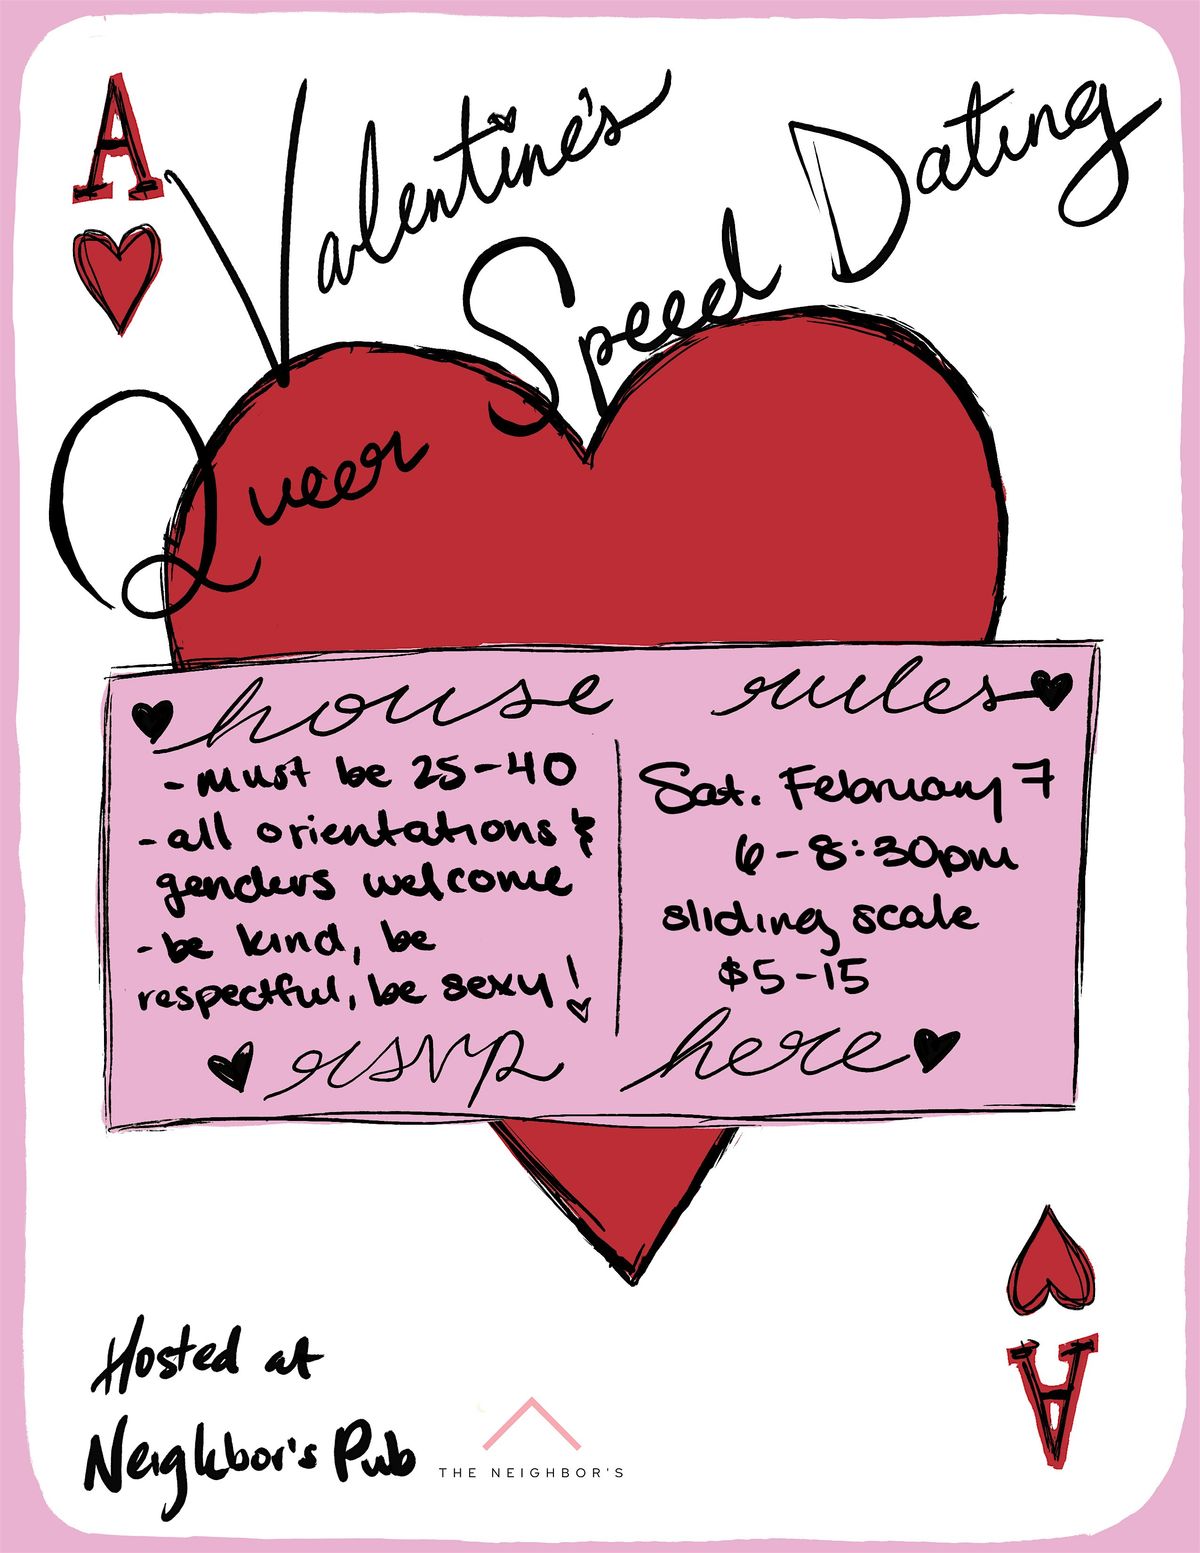 A
Valentine's
Speed Dating
Queer
house rules
- must be 25-40
- all orientations &
genders welcome
- be kind, be
respectful, be sexy!
Sat. February 7
6-8:30pm
sliding scale
$5-15
rsvp here
Hosted at
Neighbor's Pub
THE NEIGHBOR'S
A